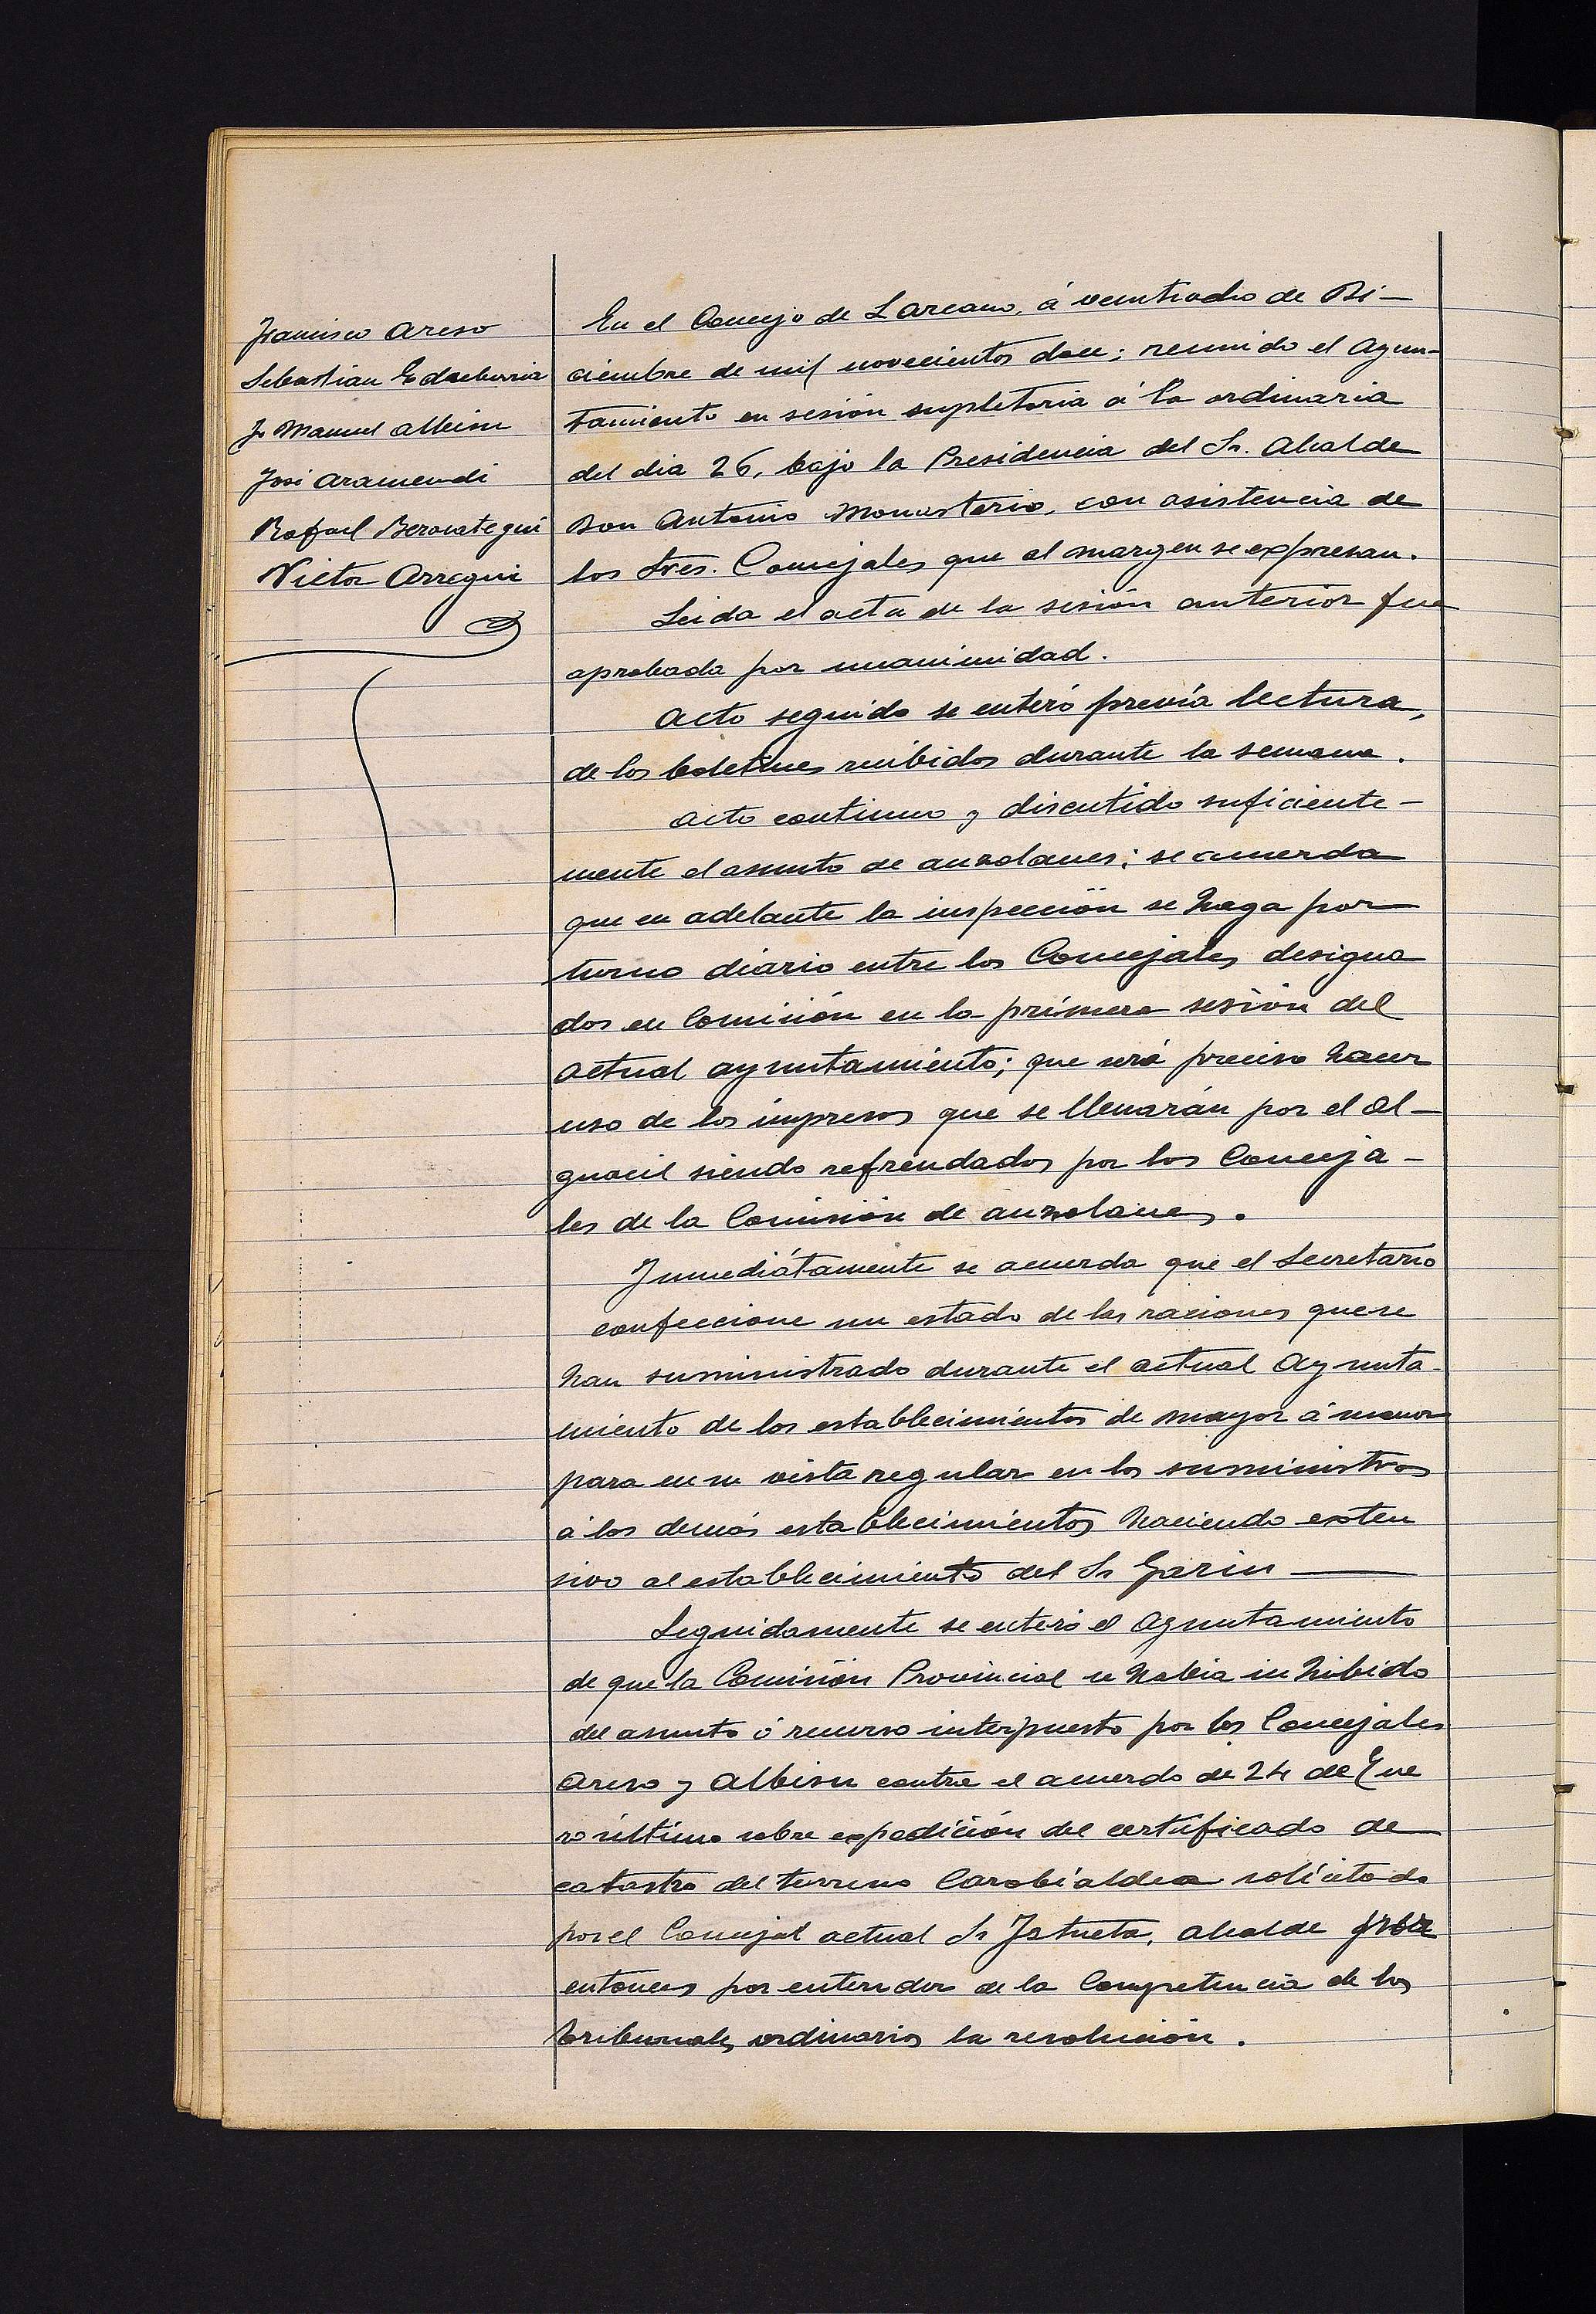 Francisco Areso
Sebastian Echeberria
J. Manuel Albisu
José Aramendi
Rafael Berasategui
Victor Arregui
En el Concejo de Lazcano, á veintiocho de Di-
ciembre de mil novecientos doce; reunido el Ayun-
tamiento en sesión supletoria á la ordinaria
del dia 26, bajo la Presidencia del Sr. Alcalde
Don Antonio Monasterio, con asistencia de
los Sres. Concejales que al margen se expresan.
Leida el acta de la sesión anterior fue
aprobada por unanimidad.
Acto seguido se enteró previa lectura,
de los boletines recibidos durante la semana.
Acto continuo y discutido suficiente-
mente el asunto de anzolanes; se acuerda
que en adelante la inspección se haga por
turno diario entre los Concejales designa
dos en Comisión en la primera sesión del
actual ayuntamiento; que será preciso hacer
uso de los impresos que se llenarán por el Al-
guacil siendo refrendados por los Conceja-
les de la Comisión de anzolanes.
Inmediátamente se acuerda que el Secretario
confeccione un estado de las raciones que se
han suministrado durante el actual Ayunta-
miento de los establecimientos de mayor á menor
para en su vista regular en los suministros
á los demás establecimientos haciendo exten
sivo al establecimiento del Sr Garin
Seguidamente se enteró el Ayuntamiento
de que la Comisión Provincial se habia inhibido
del asunto ó recurso interpuesto por los Concejales
Areso y Albisu contra el acuerdo de 24 de Ene
ro último sobre expedición del certificado de
catastro del terreno Carobialdea solicitado
por el Concejal actual Sr Iztueta, alcalde
entonces por entender de la Competencia de los
tribunales ordinarios la resolución.